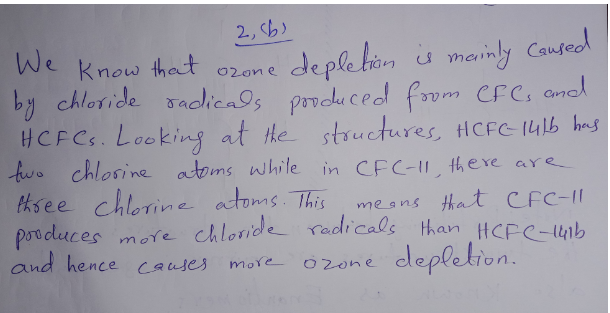 2, (b)
We know that ozone depletion is mainly caused
by chloride radicals produced from CFCs and
HCFCs. Looking at the structures, HCFC-141b has
two chlorine atoms while in CFC-11, there are
three chlorine atoms. This means that CFC-11
produces more chloride radicals than HCFC-141b
and hence causes more ozone depletion.